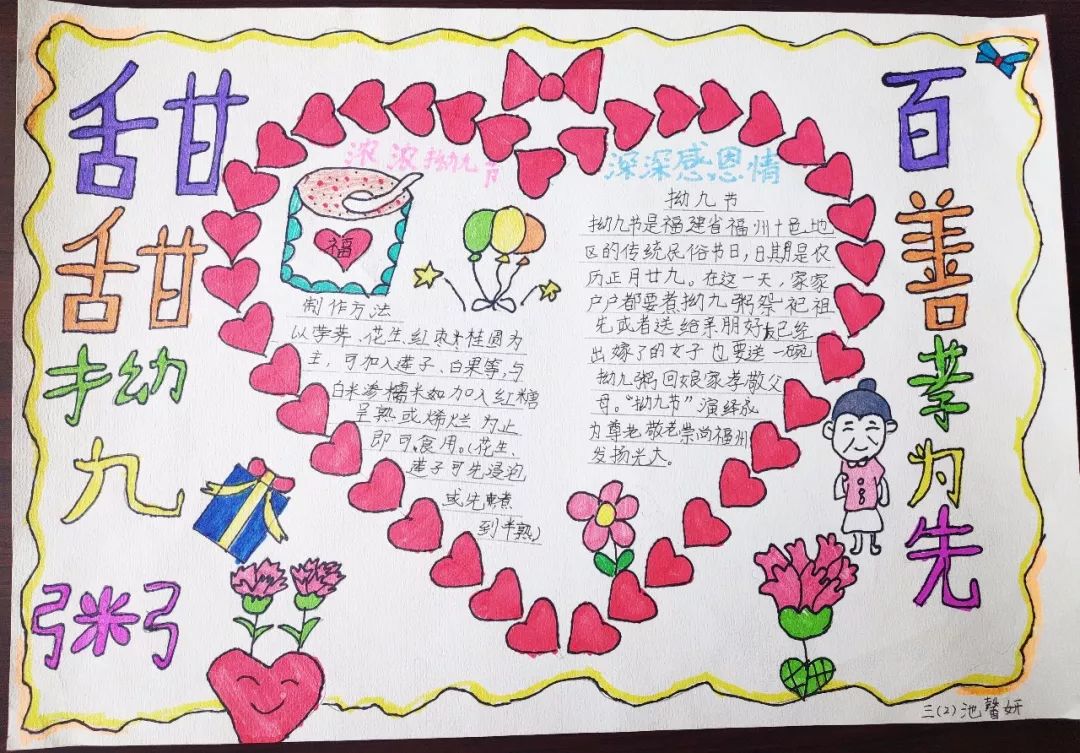 甜甜拗九粥
百善孝为先
浓浓拗九节
福
制作方法
以荸荠、花生、红枣、桂圆为
主，可加入莲子、白果等，与
白米渗糯米如加入红糖
呈熟或烯烂为止
即可食用。（花生、
莲子可先浸泡
或先煮
到半熟）
深深感恩情
拗九节
拗九节是福建省福州十邑地
区的传统民俗节日，日期是农
历正月廿九。在这一天，家家
户户都要煮拗九粥祭祀祖
先或者送给亲朋好友已经
出嫁了的女子也要送一碗
拗九粥回娘家孝敬父
母。“拗九节”演绎成
为尊老敬老崇尚福州
发扬光大。
三（2）池馨妍